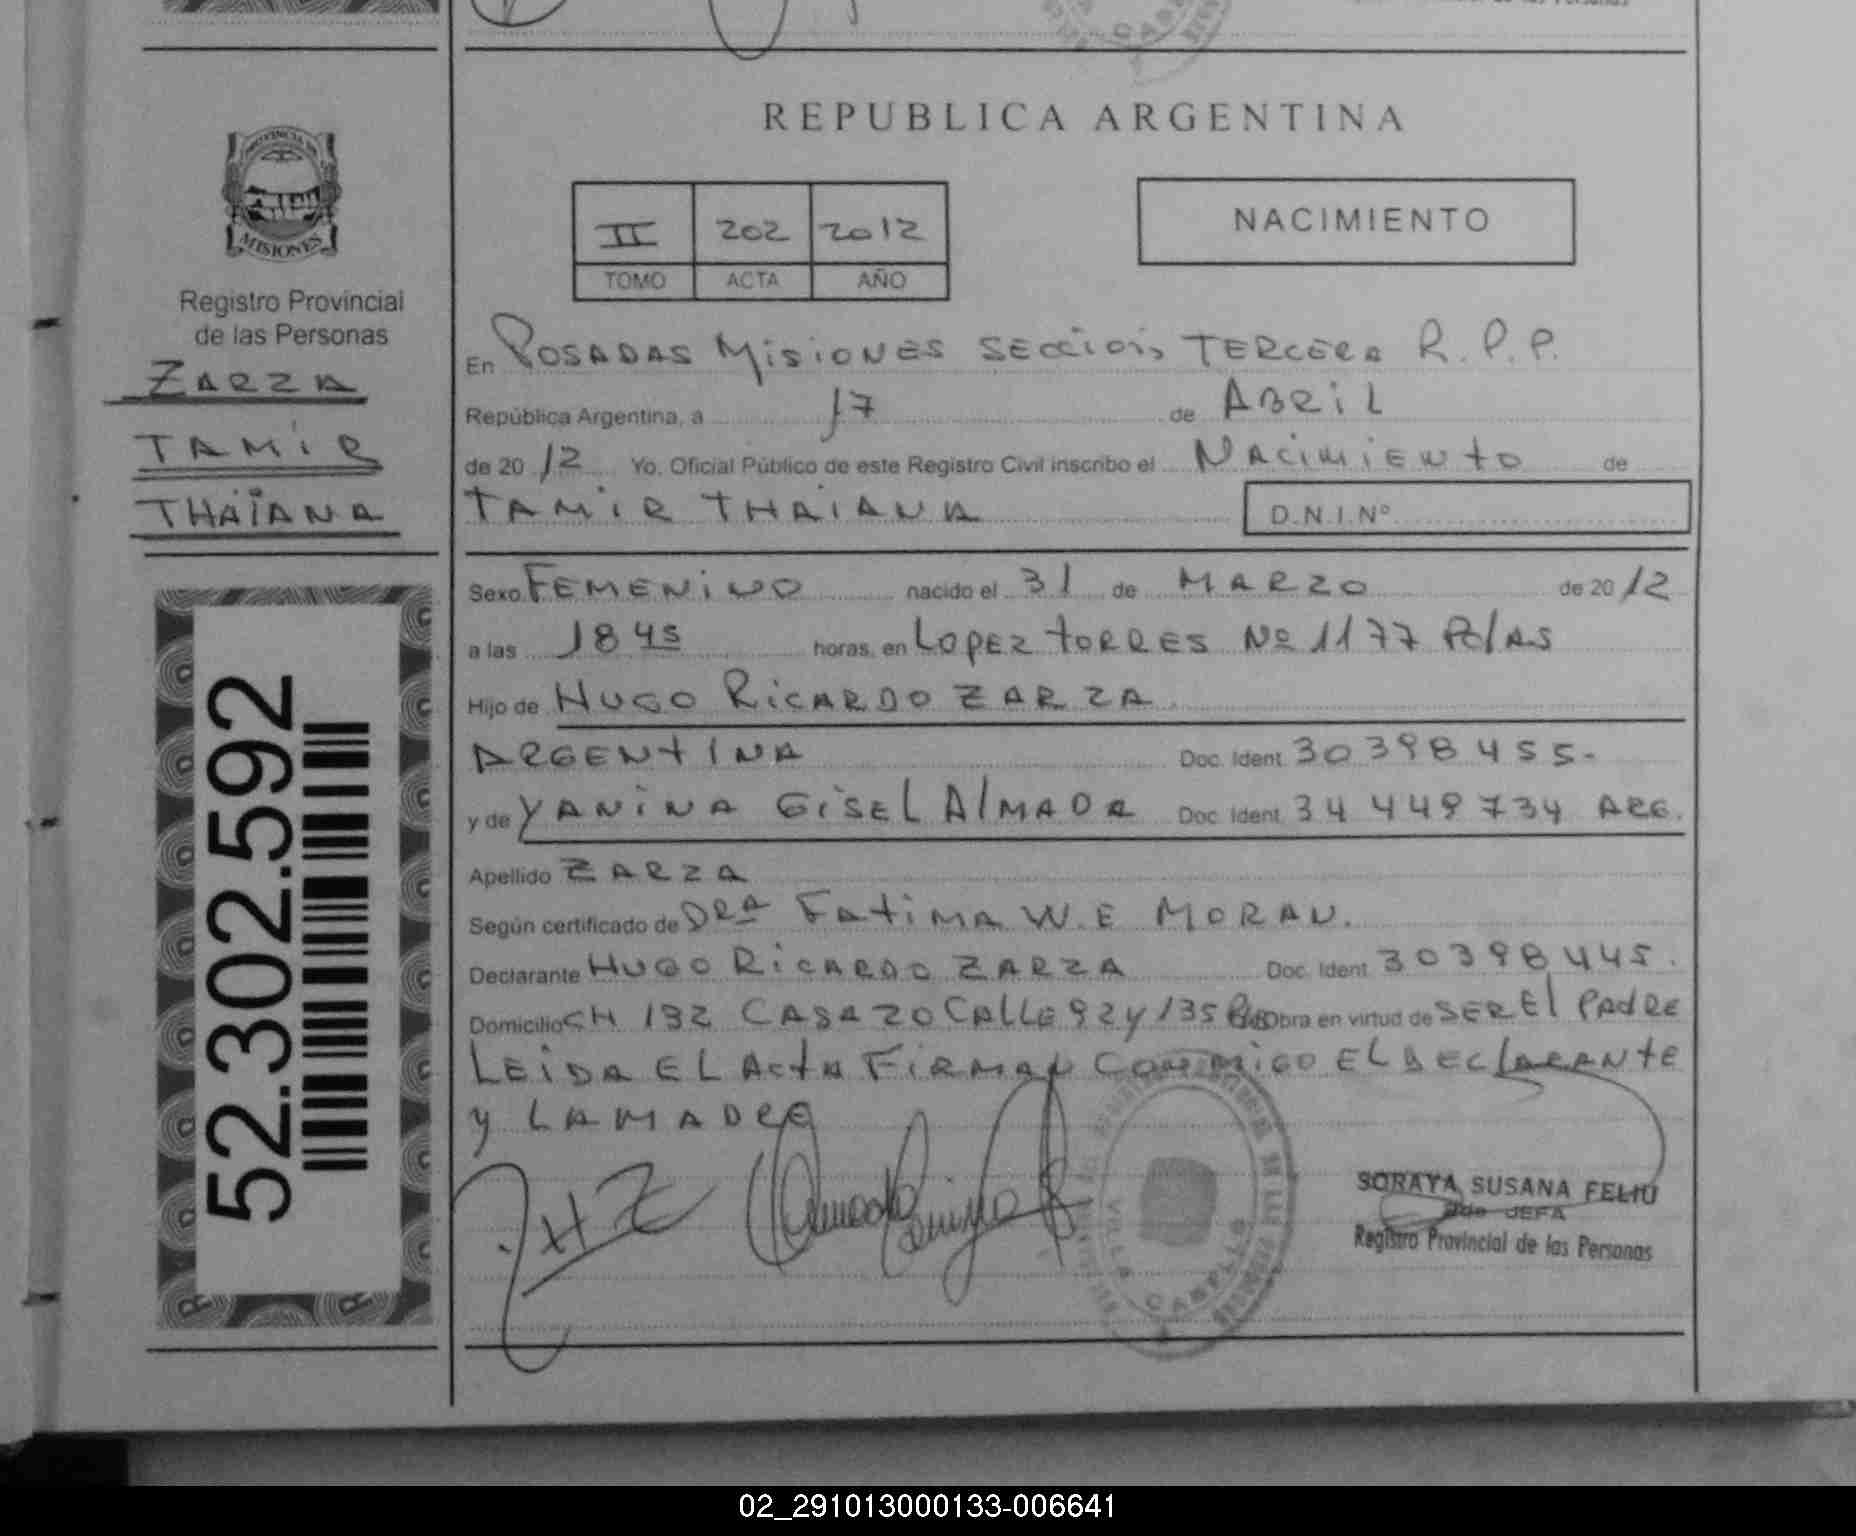 REPUBLICA ARGENTINA
PROVINCIA DE
MISIONES
Registro Provincial
de las Personas
ZARZA
TAMIR
THAIANA
52.302.592
II 202 2012
TOMO ACTA AÑO
NACIMIENTO
En POSADAS MISIONES SECCION TERCERA R.P.P.
República Argentina, a 17 de ABRIL
de 20 12 Yo, Oficial Público de este Registro Civil inscribo el NACIMIENTO de
TAMIR THAIANA D.N.I.Nº
Sexo FEMENINO nacido el 31 de MARZO de 20 12
a las 18 45 horas, en LOPEZ TORRES Nº 1177 Pdas
Hijo de HUGO RICARDO ZARZA
ARGENTINA Doc. Ident 30398455-
y de YANINA GISEL ALMADA Doc. Ident 34 449734 ARG.
Apellido ZARZA
Según certificado de DRA FATIMA W.E MORAN.
Declarante HUGO RICARDO ZARZA Doc. Ident 30398445.
Domicilio CH 132 CASA 20 CALLE 92 y 135 Obra en virtud de SER EL PADRE
LEIDA EL ACTA FIRMAN CONMIGO EL DECLARANTE
y LA MADRE
VILLA CABELLO
SORAYA SUSANA FELIU
JEFA
Registro Provincial de las Personas
02_291013000133-006641